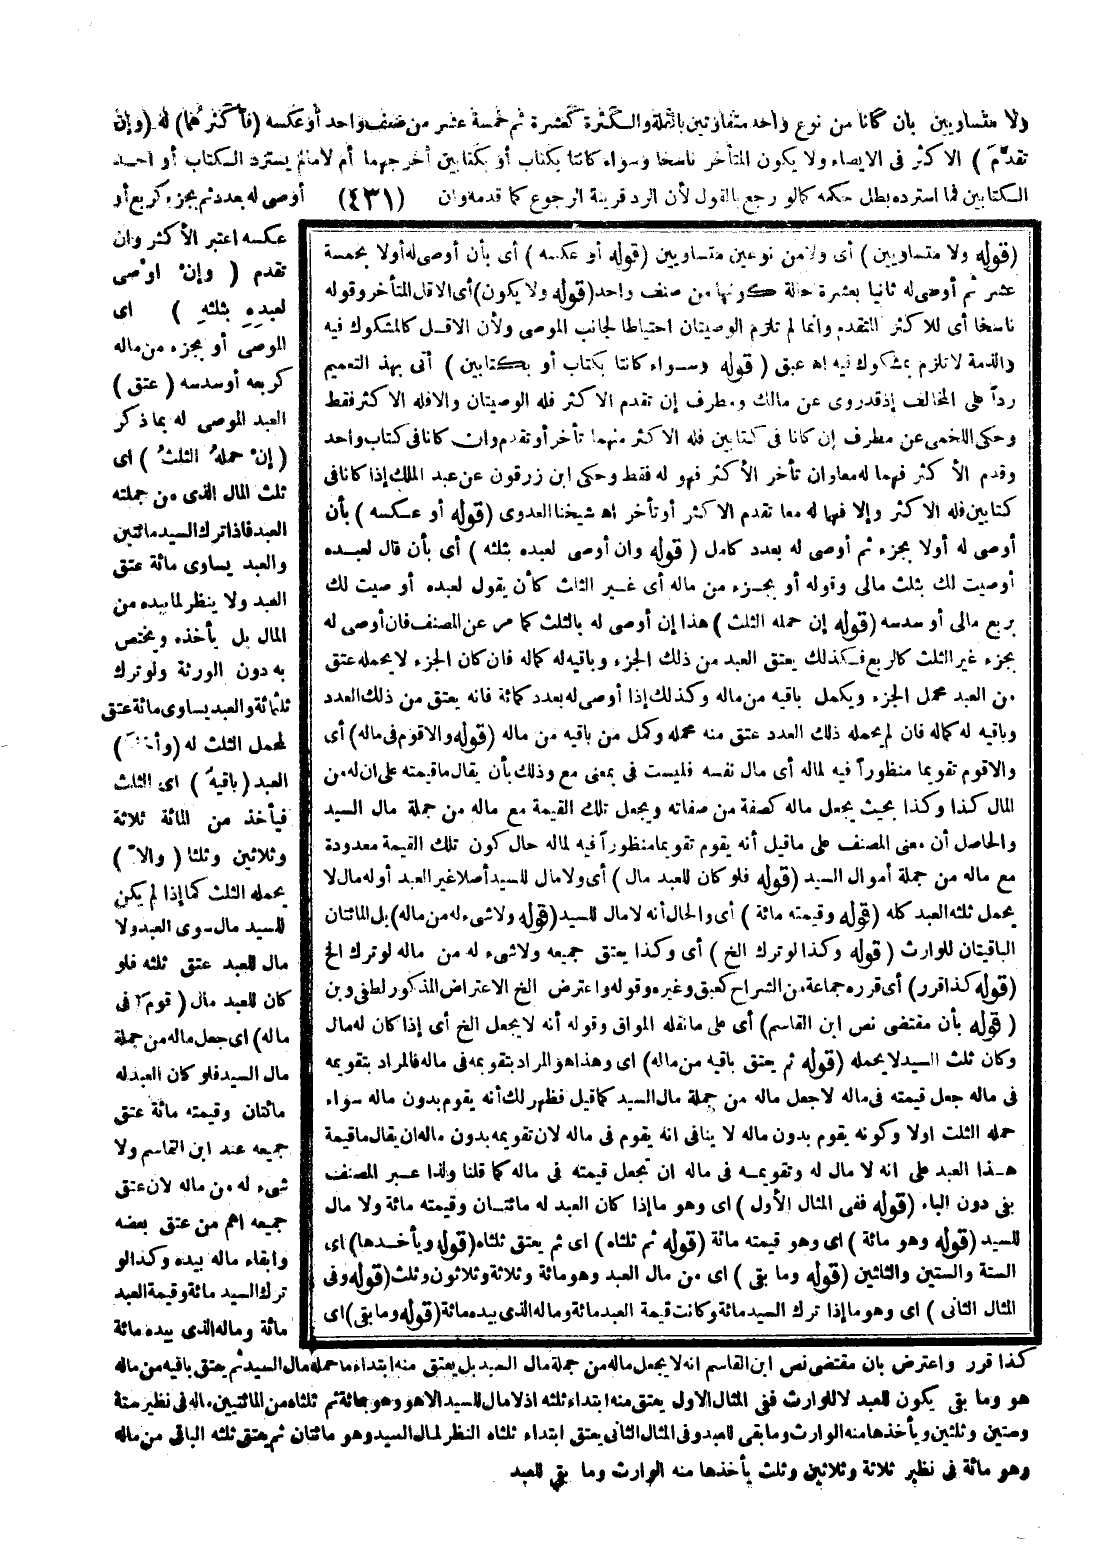 ولا متساويين بأن كانا من نوع واحد متفاوتين بالقلة والكثرة كعشرة ثم خمسة عشر من صنف واحد أو عكسه (فأكثرهما) له (وإن
تقدم) الاكثر فى الايصاء ولا يكون المتأخر ناسخا وسواء كانتا بكتاب أو بكتابين أخرجهما أم لا مالم يسترد الكتاب أو احد
الكتابين فما استرده بطل حكمه كمالو رجع بالقول لأن الرد قرينة الرجوع كما قدمه وان (٤٣١) أوصى له بعدد ثم بجزء كربع أو
عكسه اعتبر الأكثر وان
تقدم (وإن اوصى
لعبده بثلثه) اى
الموصى أو بجزء من ماله
كربعه أو سدسه (عتق)
العبد الموصى له بما ذكر
(إن حمله الثلث) اى
ثلث المال الذى من جملته
العبد فاذا ترك السيد مائتين
والعبد يساوى مائة عتق
العبد ولا ينظر لما بيده من
المال بل يأخذه ويختص
به دون الورثة ولو ترك
ثلثمائة والعبد يساوى مائة عتق
لمحمل الثلث له (وأخذ)
العبد (باقيه) اى الثلث
فيأخذ من المائة ثلاثة
وثلاثين وثلثا (والا)
يحمله الثلث كما إذا لم يكن
للسيد مال سوى العبد ولا
مال للعبد عتق ثلثه فلو
كان للعبد مال (قوم فى
ماله) اى جعل ماله من جملة
مال السيد فلو كان العبد له
مائتان وقيمته مائة عتق
جميعه عند ابن القاسم ولا
شىء له من ماله لان عتق
جميعه اهم من عتق بعضه
وابقاء ماله بيده وكذا لو
ترك السيد مائة وقيمة العبد
مائة وماله الذى بيده مائة
كذا قرر واعترض بان مقتضى نص ابن القاسم انه لا يجعل ماله من جملة مال السيد بل يعتق منه ابتداء ما حمله مال السيد ثم يعتق باقيه من ماله
هو وما بقى يكون للعبد لا للوارث ففى المثال الاول يعتق منه ابتداء ثلثه اذلا مال للسيد الا هو وهو بمائة ثم ثلثاه من المائتين ماله فى نظير ستة
وستين وثلثين ويأخذها منه الوارث وما بقى للعبد وفى المثال الثانى يعتق ابتداء ثلثاه النظر لمال السيد وهو مائتان ثم يعتق ثلثه الباقى من ماله
وهو مائة فى نظير ثلاثة وثلاثين وثلث يأخذها منه الوارث وما بقى للعبد
(قوله ولا متساويين) أى ولا من نوعين متساويين (قوله أو عكسه) أى بأن أوصى له أولا بخمسة
عشر ثم أوصى له ثانيا بعشرة حالة كونها من صنف واحد (قوله ولا يكون) أى الاقل المتأخر وقوله
ناسخا أى للاكثر المتقدم وانما لم تلزم الوصيتان احتياطا لجانب الموصى ولأن الاقل كالمشكوك فيه
والذمة لا تلزم بمشكوك فيه اه عبق (قوله وسواء كانتا بكتاب أو بكتابين) أتى بهذ التعميم
رداً على المخالف إذ قد روى عن مالك ومطرف إن تقدم الاكثر فله الوصيتان والافله الاكثر فقط
وحكى اللخمى عن مطرف إن كانا فى كتابين فله الاكثر منهما تأخر أو تقدم وان كانا فى كتاب واحد
وقدم الأكثر فهما له معا وان تأخر الأكثر فهو له فقط وحكى ابن زرقون عن عبد الملك إذا كانا فى
كتابين فله الاكثر وإلا فهما له معا تقدم الاكثر أو تأخر اه شيخنا العدوى (قوله أو عكسه) بأن
أوصى له أولا بجزء ثم أوصى له بعدد كامل (قوله وان أوصى لعبده بثلثه) أى بأن قال لعبده
أوصيت لك بثلث مالى وقوله أو بجزء من ماله أى غير الثلث كأن يقول لعبده أوصيت لك
بربع مالى أو سدسه (قوله إن حمله الثلث) هذا إن أوصى له بالثلث كما مر عن المصنف فان أوصى له
بجزء غير الثلث كالربع فكذلك يعتق العبد من ذلك الجزء وباقيه له كماله فان كان الجزء لا يحمله عتق
من العبد محمل الجزء ويكمل باقيه من ماله وكذلك إذا أوصى له بعدد كمائة فانه يعتق من ذلك العدد
وباقيه له كماله فان لم يحمله ذلك العدد عتق منه محمله وكمل من باقيه من ماله (قوله والاقوم فى ماله) أى
والاقوم تقويما منظوراً فيه لماله أى مال نفسه فليست فى بمعنى مع وذلك بأن يقال ما قيمته على ان له من
المال كذا وكذا بحيث يجعل ماله كصفة من صفاته ويجعل تلك القيمة مع ماله من جملة مال السيد
والحاصل أن معنى المصنف على ماقيل أنه يقوم تقويما منظوراً فيه لماله حال كون تلك القيمة معدودة
مع ماله من جملة أموال السيد (قوله فلو كان للعبد مال) أى ولا مال للسيد أصلا غير العبد أو له مال لا
يحمل ثلثه العبد كله (قوله وقيمته مائة) أى والحال أنه لا مال للسيد (قوله ولا شىء له من ماله) بل المائتان
الباقيتان للوارث (قوله وكذا لو ترك الخ) أى وكذا يعتق جميعه ولا شىء له من ماله لو ترك الخ
(قوله كذا قرر) أى قرره جماعة من الشراح كعبق وغيره وقوله واعترض الخ الاعتراض المذكور لطفى وبن
(قوله بأن مقتضى نص ابن القاسم) أى على مانقله المواق وقوله أنه لا يجعل الخ أى إذا كان له مال
وكان ثلث السيد لا يحمله (قوله ثم يعتق باقيه من ماله) اى وهذا هو المراد بتقويمه فى ماله فالمراد بتقويمه
فى ماله جعل قيمته فى ماله لا جعل ماله من جملة مال السيد كما قيل فظهر لك أنه يقوم بدون ماله سواء
حمله الثلث اولا وكونه يقوم بدون ماله لا ينافى انه يقوم فى ماله لان تقويمه بدون ماله ان يقال ما قيمة
هذا العبد على انه لا مال له وتقويمه فى ماله ان تجعل قيمته فى ماله كما قلنا ولذا عبر المصنف
بفى دون الباء (قوله ففى المثال الأول) اى وهو ماإذا كان العبد له مائتان وقيمته مائة ولا مال
للسيد (قوله وهو مائة) اى وهو قيمته مائة (قوله ثم ثلثاه) اى ثم يعتق ثلثاه (قوله ويأخذها) اى
الستة والستين والثلثين (قوله وما بقى) اى من مال العبد وهو مائة وثلاثة وثلاثون وثلث (قوله وفى
المثال الثانى) اى وهو ماإذا ترك السيد مائة وكانت قيمة العبد مائة وماله الذى بيده مائة (قوله وما بقى) اى